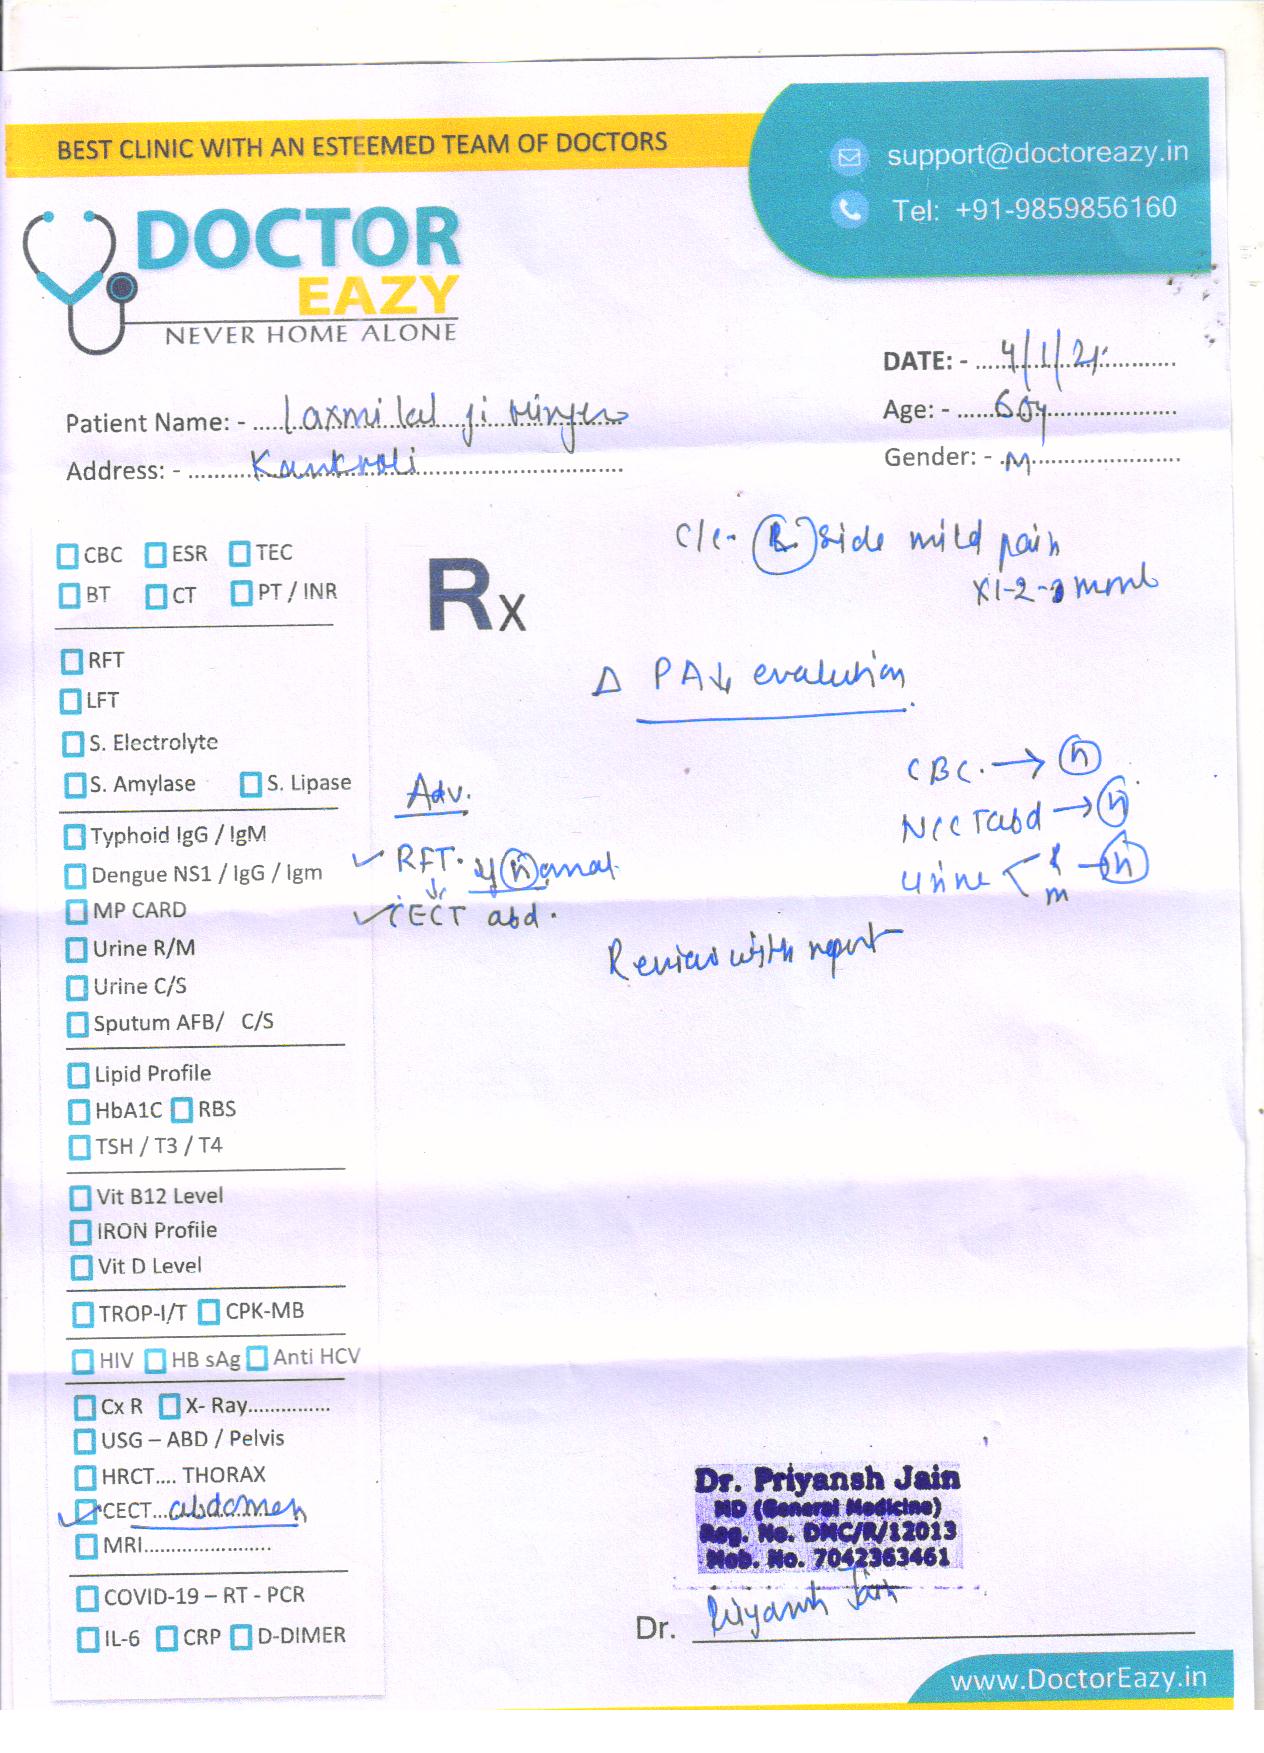 BEST CLINIC WITH AN ESTEEMED TEAM OF DOCTORS
support@doctoreazy.in
Tel: +91-9859856160
DOCTOR
EAZY
NEVER HOME ALONE
DATE: - 4/1/21
Patient Name: - Laxmi lal ji
Age: - 60y
Address: - Kankroli
Gender: - M
C/c - R side mild pain
x1-2- month
CBC ESR TEC
BT CT PT / INR
Rx
Δ PA↓ evalution
RFT
LFT
S. Electrolyte
S. Amylase S. Lipase
Adv.
CBC. → n
NCCT abd → n
RFT.
CECT abd.
Urine → n
m
Review with report
Typhoid IgG / IgM
Dengue NS1 / IgG / Igm
MP CARD
Urine R/M
Urine C/S
Sputum AFB/ C/S
Lipid Profile
HbA1C RBS
TSH / T3 / T4
Vit B12 Level
IRON Profile
Vit D Level
TROP-I/T CPK-MB
HIV HB sAg Anti HCV
Cx R X- Ray...............
USG – ABD / Pelvis
HRCT.... THORAX
CECT...abdomen
MRI.......................
COVID-19 – RT - PCR
IL-6 CRP D-DIMER
Dr. Priyansh Jain
MD (General Medicine)
Reg. No. DMC/R/12013
Mob. No. 7042363461
Dr. Priyansh Jain
www.DoctorEazy.in